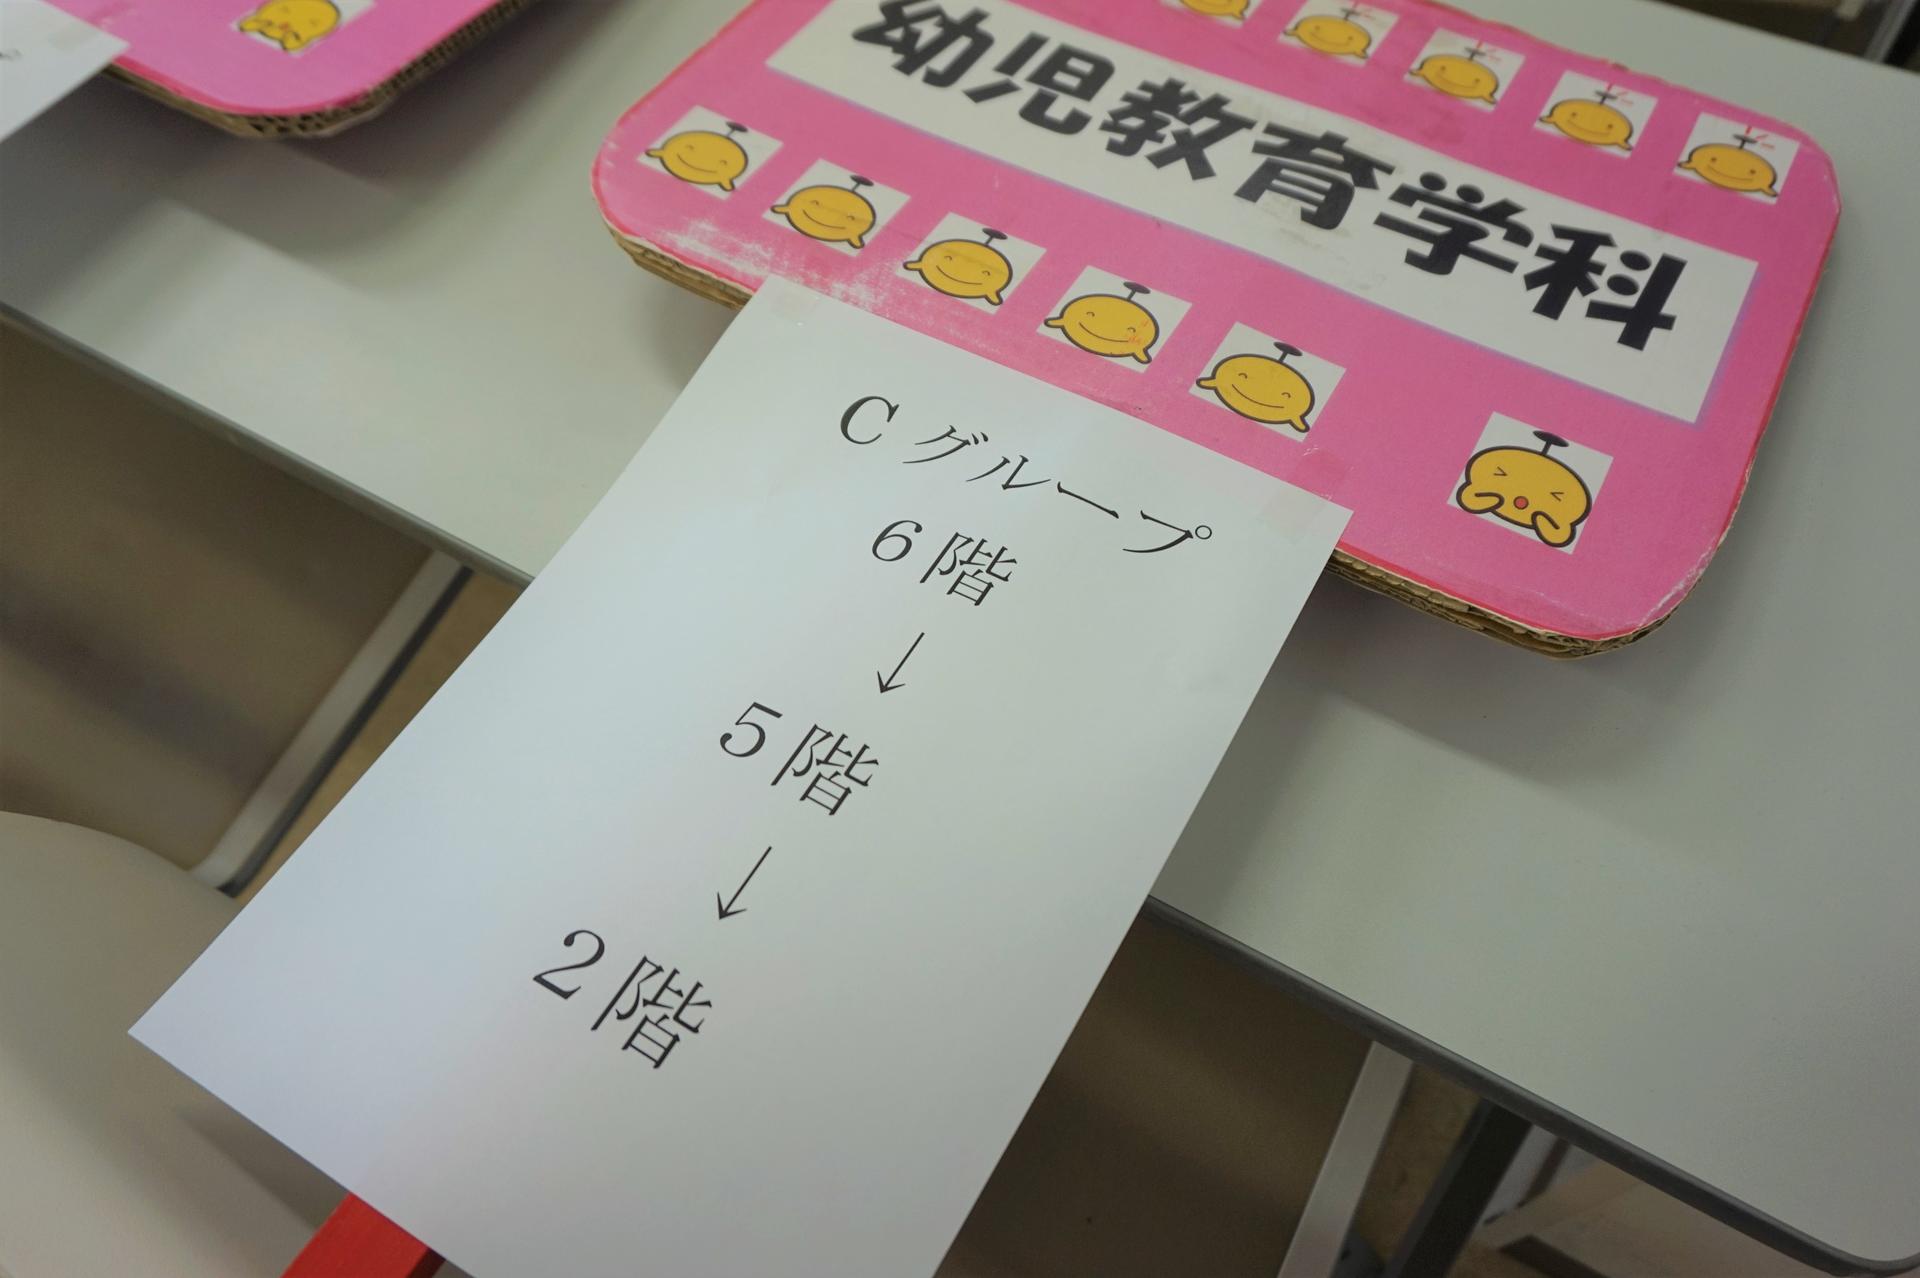 幼児教育学科
Cグループ
6階
↓
5階
↓
2階